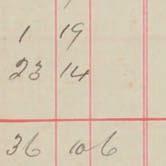 1 19
23 14
36 106